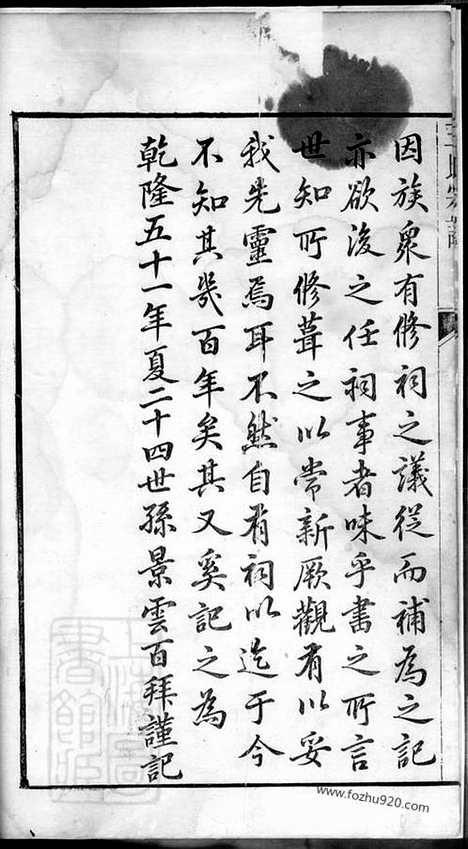 因族衆有修祠之議從而補為之記
亦欲後之任祠事者味乎書之所言
世知所修葺之以常新厥觀有以妥
我先靈焉耳不然自有祠以迄于今
不知其幾百年矣其又奚記之為
乾隆五十一年夏二十四世孫景雲百拜謹記
上海圖書館藏
www.fozhu920.com